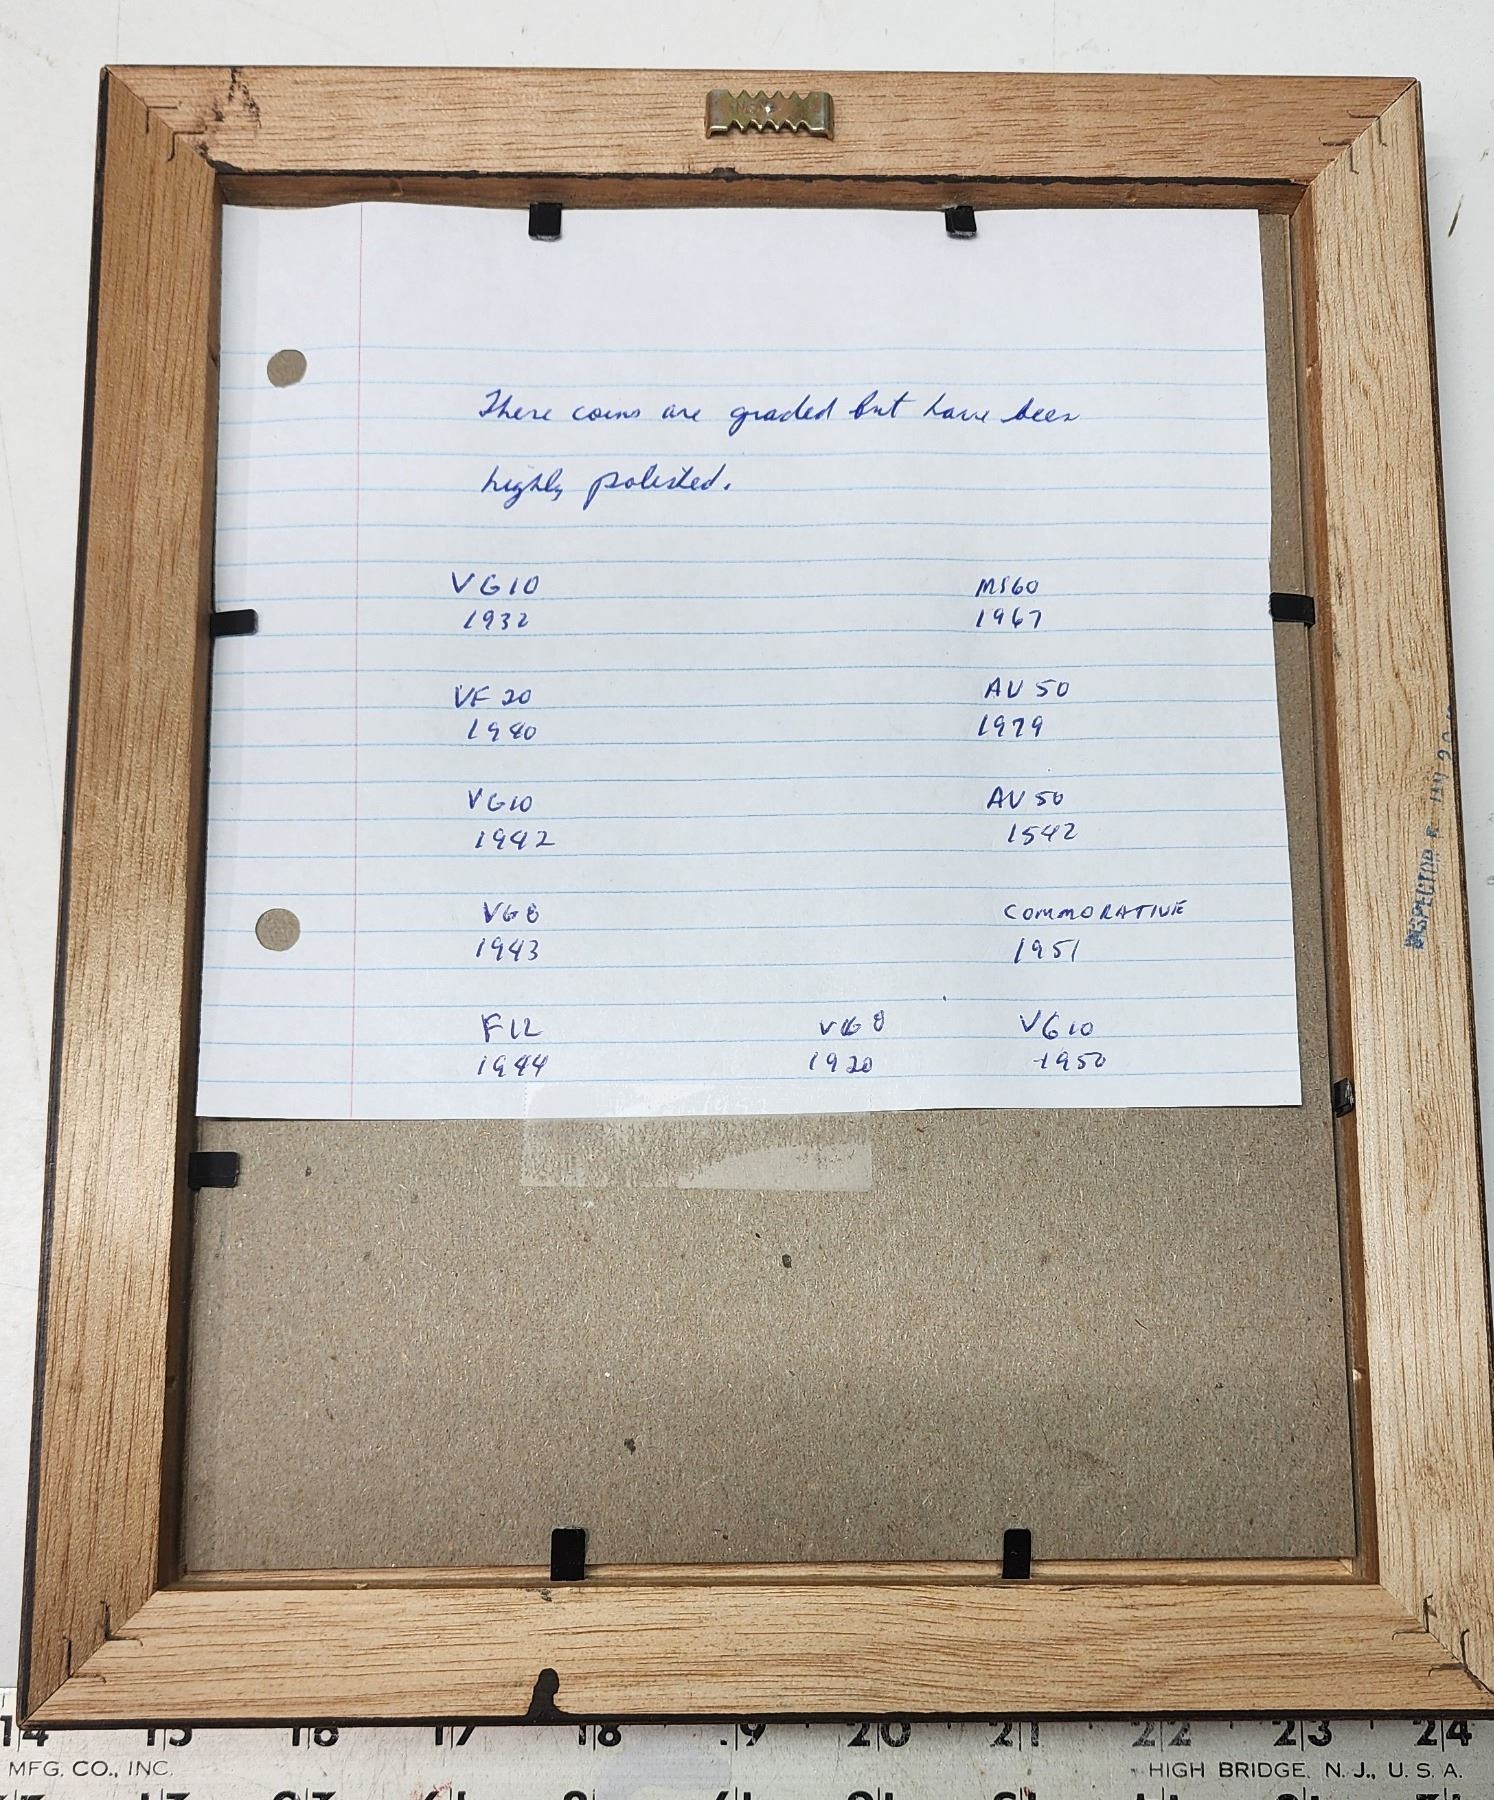 These coins are graded but have been
highly polished.
VG10 MS60
1932 1967
VF 20 AU 50
1940 1979
VG10 AU 50
1942 1542
VG8 COMMORATIVE
1943 1951
F12 VG8 VG10
1944 1920 1950
14 15 16 17 18 19 20 21 22 23 24
MFG. CO., INC. HIGH BRIDGE, N. J., U. S. A.